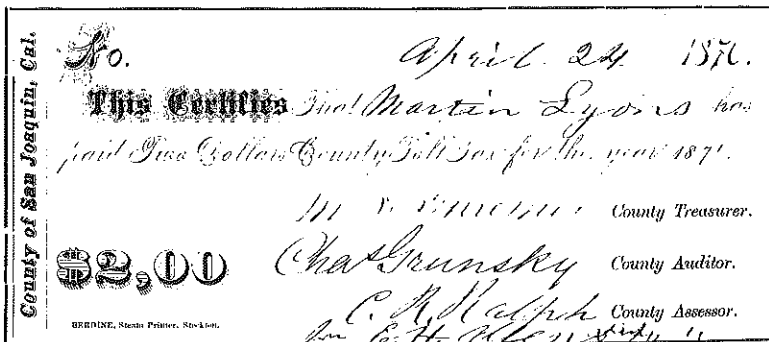 County of San Joaquin, Cal.
No.
April 24 1871.
This Certifies That Martin Lyons has
paid Two Dollars County Poll Tax for the year 1871.
County Treasurer.
$2,00
Chas Grunsky County Auditor.
C. R. Ralph County Assessor.
BERDINE, Steam Printer, Stockton.
E. H. Allen